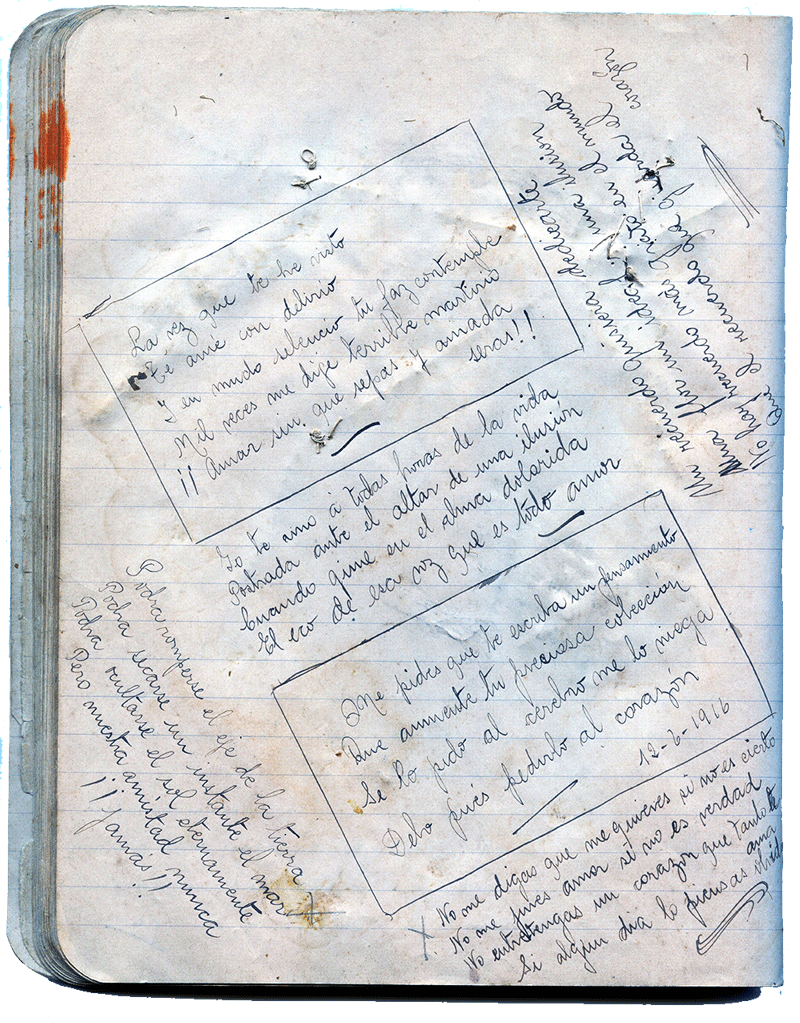 Un recuerdo quisiera dedicarte
Una flor un ideal una ilusion
No hay recuerdo mas grato en el mundo
Que el recuerdo que guarda el corazón
La vez que te he visto
Te ame con delirio
Y en mudo silencio tu faz contemple
Mil veces me dije terrible martirio
¡¡Amar sin que sepas y amada
seras!!
Yo te amo á todas horas de la vida
Postrada ante el altar de una ilusión
Cuando gime en el alma dolorida
El eco de esa voz que es todo amor
Me pides que te escriba un pensamiento
Que aumente tu preciosa colección
Si lo pido al cerebro me lo niega
Debo pués pedirlo al corazón
12-6-1916
Podra romperse el eje de la tierra
Podra secarse un instante el mar
Podra ocultarse el sol eternamente
Pero nuestra amistad nunca
¡¡jamás!!
No me digas que me quieres si no es cierto
No me jures amor si no es verdad
No entretengas un corazón que tanto te
ama
Si algun dia lo piensas olvidar